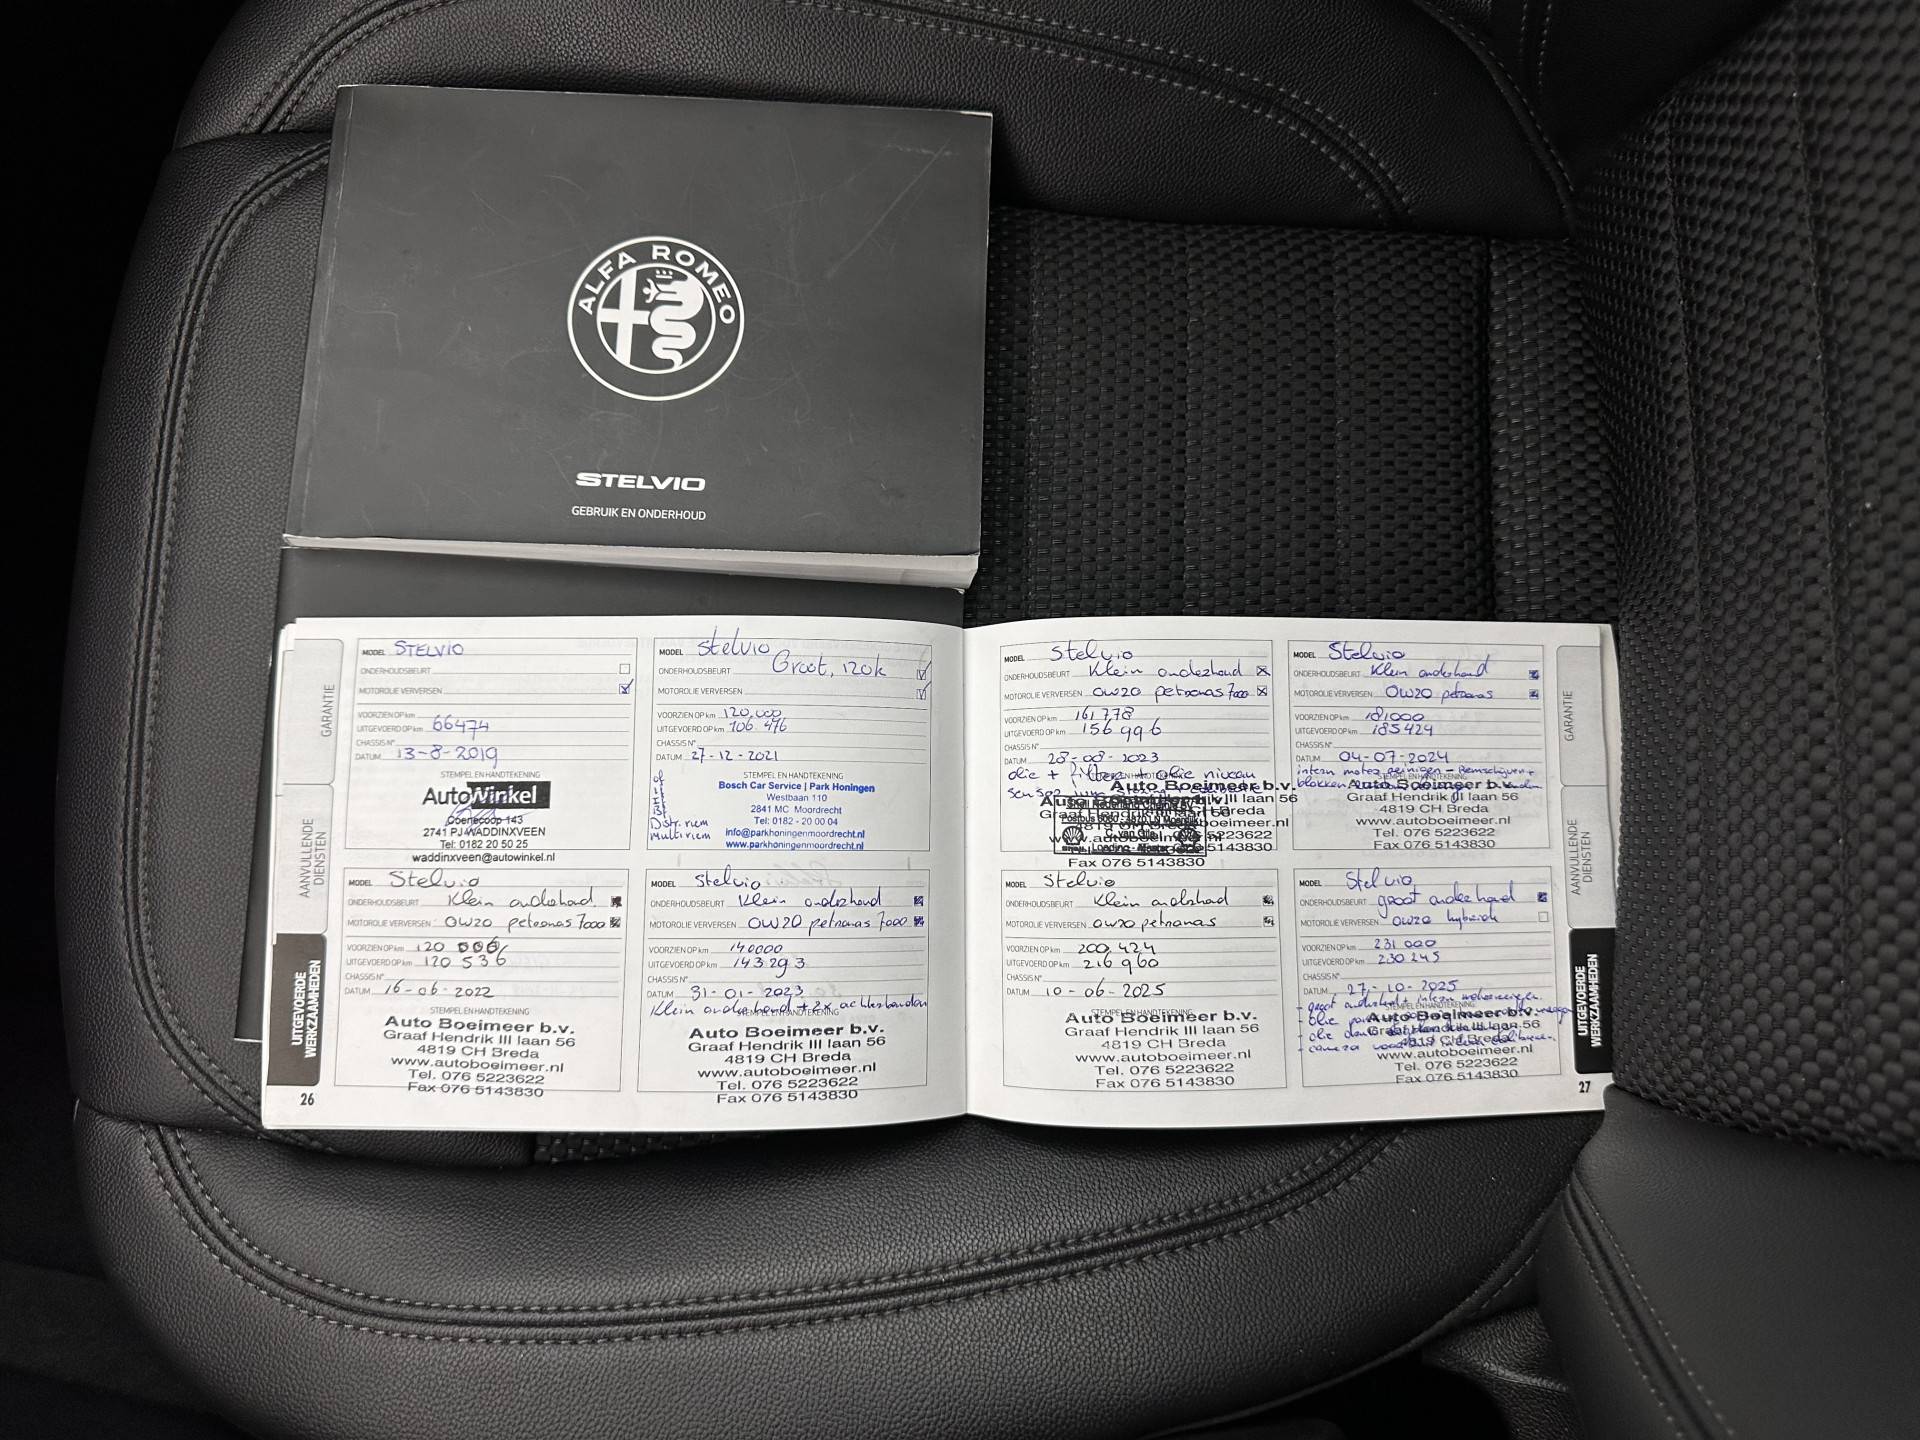 ALFA ROMEO
STELVIO
GEBRUIK EN ONDERHOUD
GARANTIE
AANVULLENDE
DIENSTEN
UITGEVOERDE
WERKZAAMHEDEN
26
MODEL STELVIO
ONDERHOUDSBEURT
MOTOROLIE VERVERSEN
VOORZIEN OP km
UITGEVOERD OP km 66474
CHASSIS N°
DATUM 13-8-2019
STEMPEL EN HANDTEKENING
AutoWinkel
Coenecoop 143
2741 PJ WADDINXVEEN
Tel: 0182 20 50 25
waddinxveen@autowinkel.nl
MODEL Stelvio
ONDERHOUDSBEURT Groot, 120k
MOTOROLIE VERVERSEN
VOORZIEN OP km 120.000
UITGEVOERD OP km 106 476
CHASSIS N°
DATUM 27-12-2021
STEMPEL EN HANDTEKENING
Bosch Car Service | Park Honingen
Westbaan 110
2841 MC Moordrecht
Tel: 0182 - 20 00 04
info@parkhoningenmoordrecht.nl
www.parkhoningenmoordrecht.nl
Distr. riem
multiriem
MODEL Stelvio
ONDERHOUDSBEURT Klein onderhoud
MOTOROLIE VERVERSEN 0W20 petronas 7000
VOORZIEN OP km 120
UITGEVOERD OP km 120 536
CHASSIS N°
DATUM 16-06-2022
STEMPEL EN HANDTEKENING
Auto Boeimeer b.v.
Graaf Hendrik III laan 56
4819 CH Breda
www.autoboeimeer.nl
Tel. 076 5223622
Fax 076 5143830
MODEL Stelvio
ONDERHOUDSBEURT Klein onderhoud
MOTOROLIE VERVERSEN 0W20 petronas 7000
VOORZIEN OP km 140000
UITGEVOERD OP km 143293
CHASSIS N°
DATUM 31-01-2023
Klein onderhoud + 2x achterbanden
STEMPEL EN HANDTEKENING
Auto Boeimeer b.v.
Graaf Hendrik III laan 56
4819 CH Breda
www.autoboeimeer.nl
Tel. 076 5223622
Fax 076 5143830
MODEL Stelvio
ONDERHOUDSBEURT Klein onderhoud
MOTOROLIE VERVERSEN 0W20 petronas 7000
VOORZIEN OP km 161 778
UITGEVOERD OP km 156 996
CHASSIS N°
DATUM 28-08-2023
olie + filters + olie niveau
sensor
Auto Boeimeer b.v.
Graaf Hendrik III laan 56
4819 CH Breda
Fax 076 5143830
MODEL Stelvio
ONDERHOUDSBEURT Klein onderhoud
MOTOROLIE VERVERSEN 0W20 petronas
VOORZIEN OP km 181000
UITGEVOERD OP km 185424
CHASSIS N°
DATUM 04-07-2024
intern motor reinigen - Remschijven +
blokken
Auto Boeimeer b.v.
Graaf Hendrik III laan 56
4819 CH Breda
www.autoboeimeer.nl
Tel. 076 5223622
Fax 076 5143830
MODEL Stelvio
ONDERHOUDSBEURT Klein onderhoud
MOTOROLIE VERVERSEN 0W20 petronas
VOORZIEN OP km 200.424
UITGEVOERD OP km 216960
CHASSIS N°
DATUM 10-06-2025
STEMPEL EN HANDTEKENING
Auto Boeimeer b.v.
Graaf Hendrik III laan 56
4819 CH Breda
www.autoboeimeer.nl
Tel. 076 5223622
Fax 076 5143830
MODEL Stelvio
ONDERHOUDSBEURT groot onderhoud
MOTOROLIE VERVERSEN 0W20 hybride
VOORZIEN OP km 231 000
UITGEVOERD OP km 230 245
CHASSIS N°
DATUM 27-10-2025
- groot onderhoud + intern
- olie
- olie
- camera
Auto Boeimeer b.v.
Graaf Hendrik III laan 56
4819 CH Breda
www.autoboeimeer.nl
Tel. 076 5223622
Fax 076 5143830
GARANTIE
AANVULLENDE
DIENSTEN
UITGEVOERDE
WERKZAAMHEDEN
27